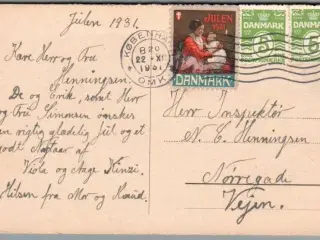 Julen 1931.
Kære Herr og Fru
Henningsen.
De og Erik, samt Herr
og Fru Simonsen ønskes
en rigtig glædelig Jul og et
godt Nytaar af
Viola og Aage Kinzi.
Hilsen fra Mor og
KØBENHAVN
22-XII
1931
OMK
JULEN
1931
DANMARK
DANMARK
5
DANMARK
5
Herr Inspektør
N. C. Henningsen
Nørregade
Vejen.